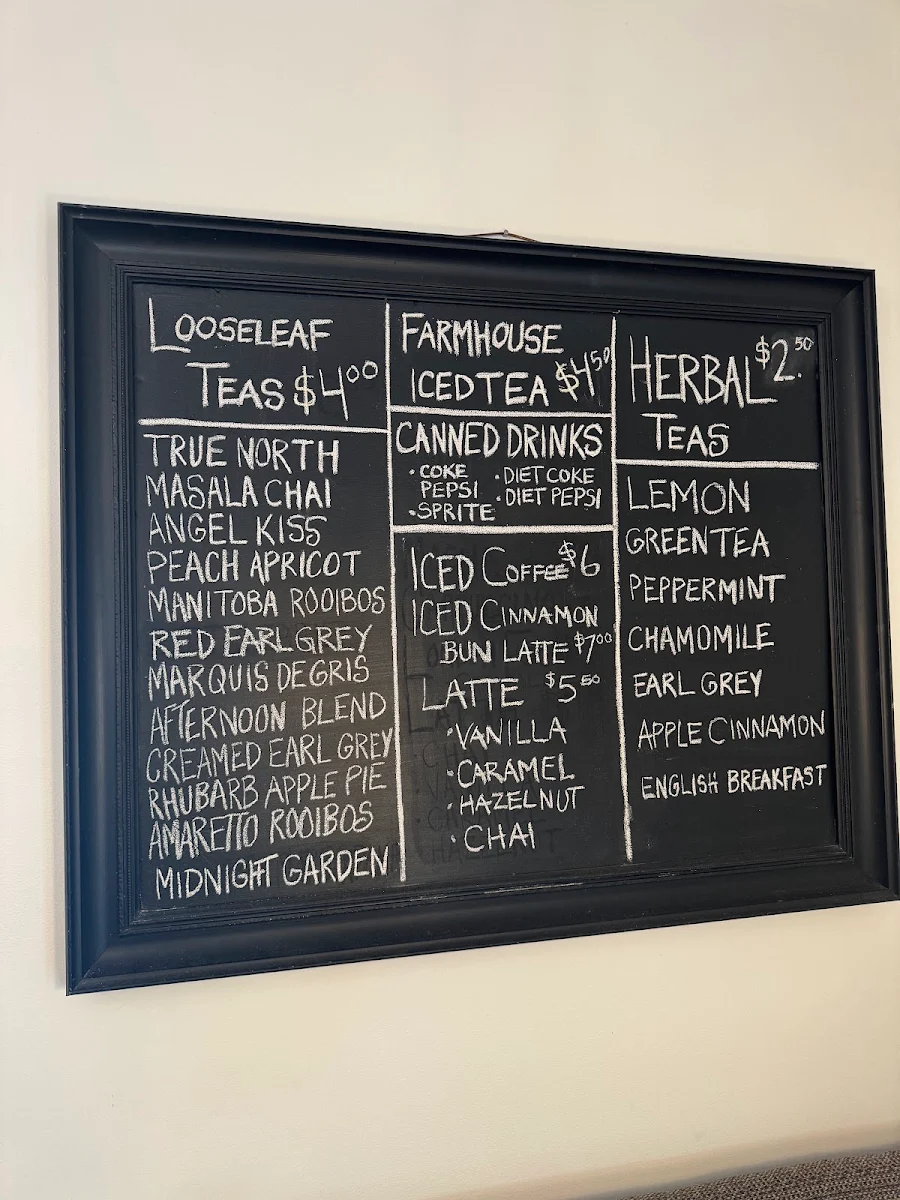 LOOSELEAF
TEAS $4.00
TRUE NORTH
MASALA CHAI
ANGEL KISS
PEACH APRICOT
MANITOBA ROOIBOS
RED EARL GREY
MARQUIS DE GRIS
AFTERNOON BLEND
CREAMED EARL GREY
RHUBARB APPLE PIE
AMARETTO ROOIBOS
MIDNIGHT GARDEN
FARMHOUSE
ICED TEA $4.50
CANNED DRINKS
• COKE • DIET COKE
PEPSI • DIET PEPSI
• SPRITE
ICED COFFEE $6
ICED CINNAMON
BUN LATTE $7.00
LATTE $5.50
• VANILLA
• CARAMEL
• HAZELNUT
• CHAI
HERBAL $2.50
TEAS
LEMON
GREEN TEA
PEPPERMINT
CHAMOMILE
EARL GREY
APPLE CINNAMON
ENGLISH BREAKFAST